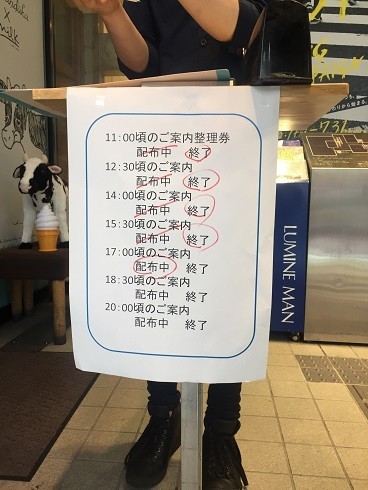 milk
11:00頃のご案内整理券
配布中 終了
12:30頃のご案内
配布中 終了
14:00頃のご案内
配布中 終了
15:30頃のご案内
配布中 終了
17:00頃のご案内
配布中 終了
18:30頃のご案内
配布中 終了
20:00頃のご案内
配布中 終了
LUMINE MAN